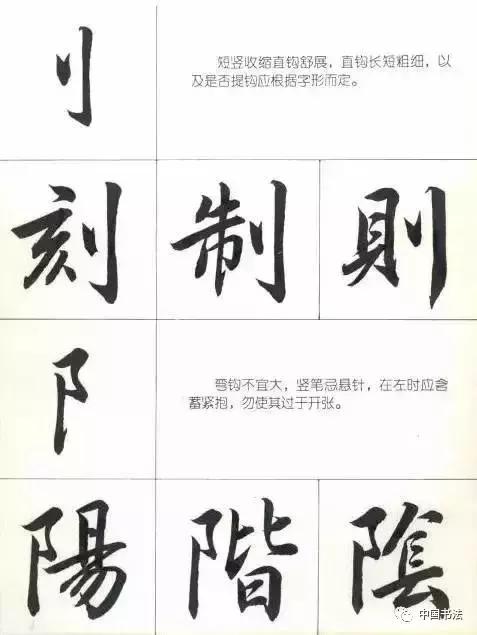 刂
短竖收缩直钩舒展，直钩长短粗细，以
及是否提钩应根据字形而定。
刻 制 則
阝
弯钩不宜大，竖笔忌悬针，在左时应含
蓄紧抱，勿使其过于开张。
陽 階 陰
中国书法